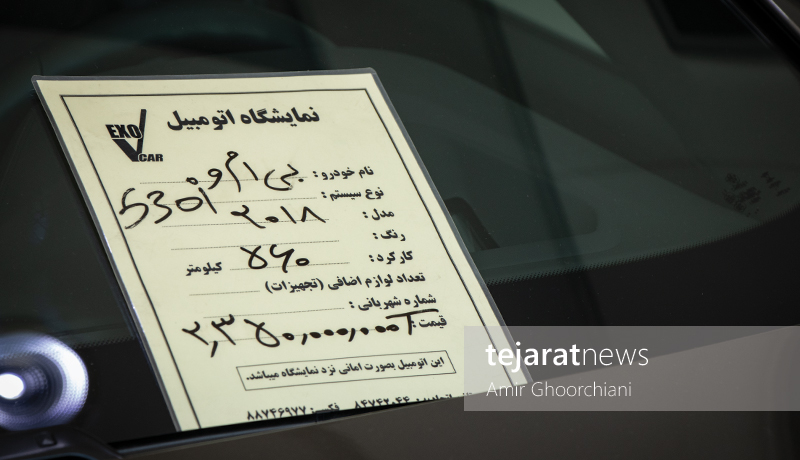 نمایشگاه اتومبیل
EXO CAR
نام خودرو : بی ام و
نوع سیستم : 530i
مدل : ۲۰۱۸
رنگ :
کارکرد : ۷۶۰ کیلومتر
تعداد لوازم اضافی (تجهیزات)
شماره شهربانی :
قیمت :
این اتومبیل بصورت امانی نزد نمایشگاه میباشد.
۸۴۷۶۲۰۴۴ فکس: ۸۸۷۴۶۹۷۷
tejaratnews
Amir Ghoorchiani